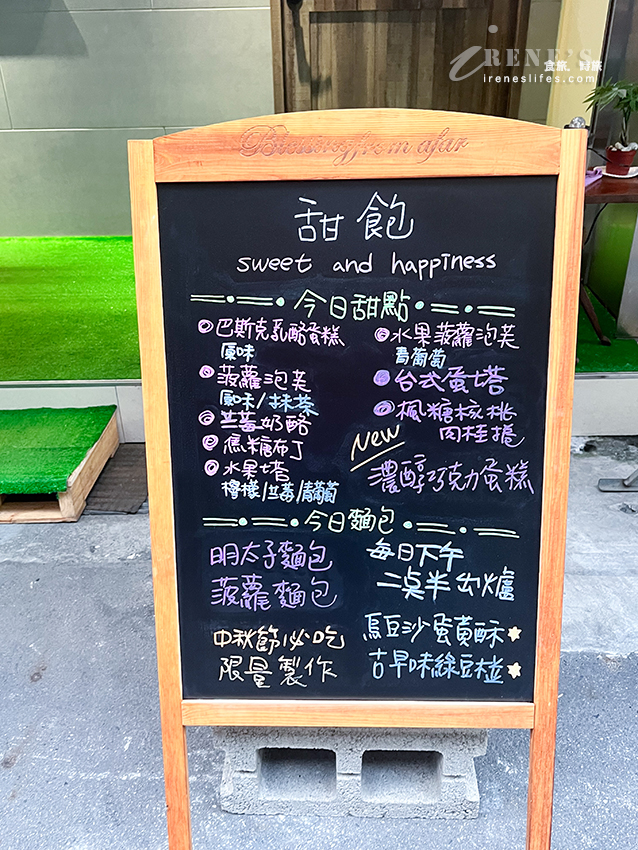 iRENE'S
食旅.時旅
ireneslifes.com
甜飽
sweet and happiness
今日甜點
巴斯克乳酪蛋糕
原味
菠蘿泡芙
原味/抹茶
莓奶酪
焦糖布丁
水果塔
檸檬/莓/葡萄
水果菠蘿泡芙
青葡萄
台式蛋塔
楓糖核桃
肉桂捲
New
濃醇巧克力蛋糕
今日麵包
明太子麵包
菠蘿麵包
每日下午
二點半出爐
中秋節必吃
限量製作
烏豆沙蛋黃酥
古早味綠豆椪